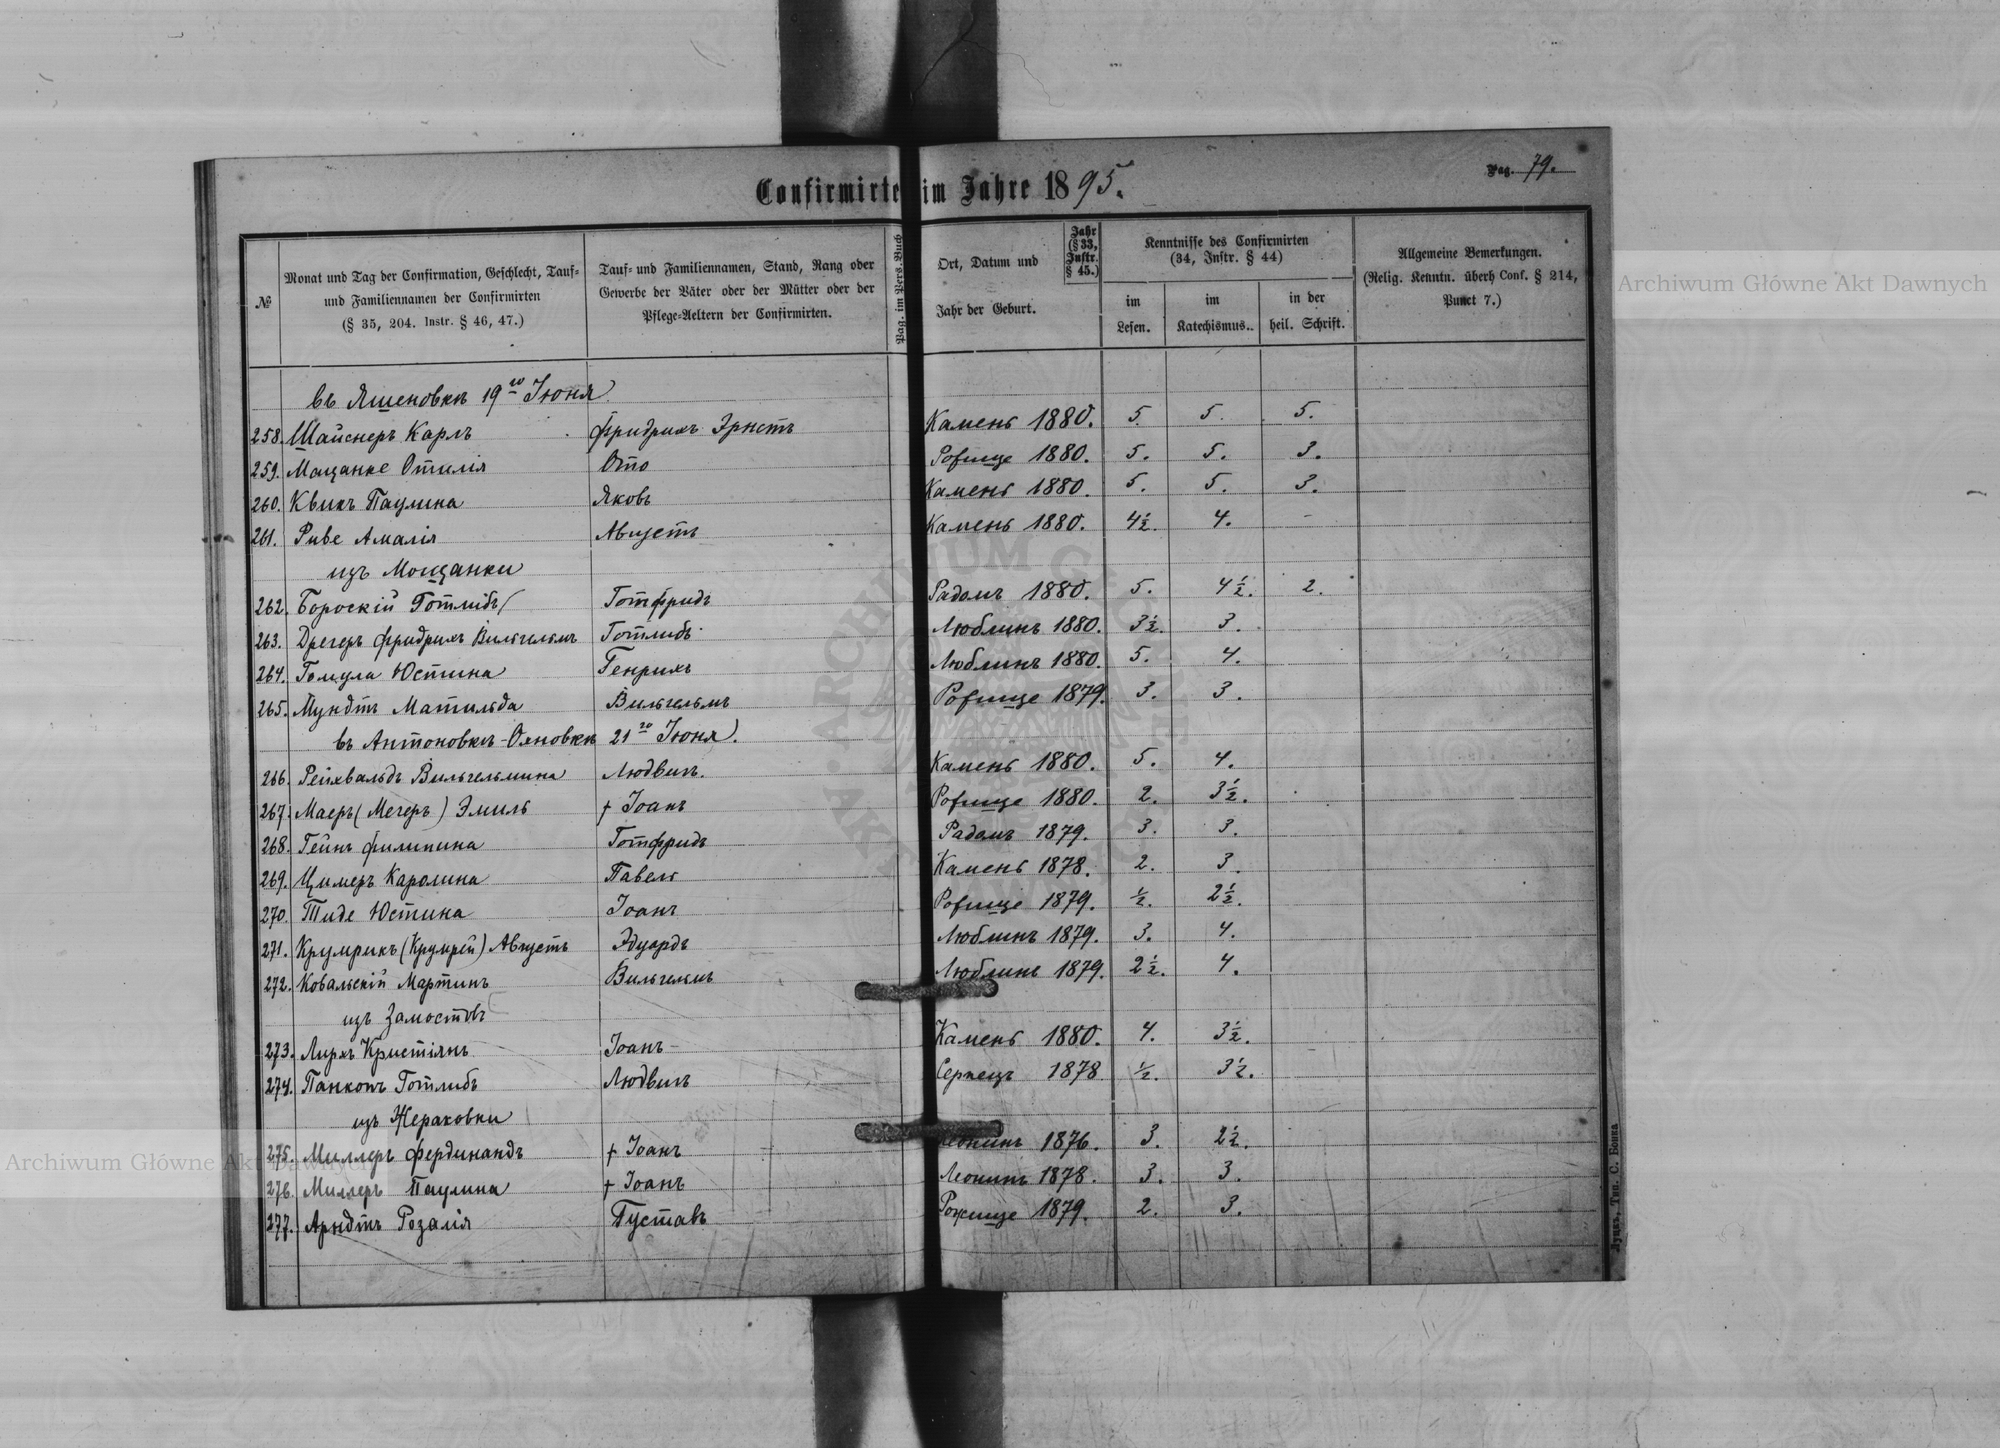 Pag. 79.
Confirmirte im Jahre 1895.
№
Monat und Tag der Confirmation, Geschlecht, Tauf- und Familiennamen der Confirmirten (§ 35, 204. Instr. § 46, 47.)
Tauf- und Familiennamen, Stand, Rang oder Gewerbe der Väter oder der Mütter oder der Pflege-Aeltern der Confirmirten.
Pag. im Pers. Buch
Ort, Datum und Jahr der Geburt.
Jahr (§ 33, Instr. § 45.)
Kenntnisse des Confirmirten (34, Instr. § 44)
im Lesen.
im Katechismus..
in der heil. Schrift.
Allgemeine Bemerkungen. (Relig. Kenntn. überh Conf. § 214, Punct 7.)
въ Яшеновкѣ 19го Іюня
258. Шайснеръ Карлъ Фридрихъ Эрнстъ Камень 1880. 5. 5. 5.
259. Мащанке Отилія Ото Рожище 1880. 5. 5. 3.
260. Квикъ Паулина Яковъ Камень 1880. 5. 5. 3.
261. Риве Амалія Августъ Камень 1880. 4½. 4. -
изъ Мощанки
262. Бороскій Готлибъ Готфридъ Радомъ 1880. 5. 4½. 2.
263. Дрегеръ Фридрихъ Вильгельмъ Готлибъ Люблинъ 1880. 3½. 3.
264. Гомула Юстина Генрихъ Люблинъ 1880. 5. 4.
265. Мундтъ Матильда Вильгельмъ Рожище 1879. 3. 3.
въ Антоновкѣ-Ояновкѣ 21го Іюня.
266. Рейхвальдъ Вильгельмина Людвигъ. Камень 1880. 5. 4.
267. Маеръ (Мегеръ) Эмиль † Іоанъ Рожище 1880. 2. 3½.
268. Гейнъ Филипина Готфридъ Радомъ 1879. 3. 3.
269. Цимеръ Каролина Павелъ Камень 1878. 2. 3.
270. Тиде Юстина Іоанъ Рожище 1879. ½. 2½.
271. Крумрикъ (Крумрей) Августъ Эдуардъ Люблинъ 1879. 3. 4.
272. Ковальскій Мартинъ Вильгельмъ Люблинъ 1879. 2½. 4.
изъ Замостовъ
273. Лирхъ Кристіянъ Іоанъ Камень 1880. 4. 3½.
274. Панкопъ Готлибъ Людвигъ Серпецъ 1878 ½. 3½.
изъ Жераховки
275. Миллеръ Фердинандъ † Іоанъ Леонинъ 1876. 3. 2½.
276. Миллеръ Паулина † Іоанъ Леонинъ 1878. 3. 3.
277. Арндтъ Розалія Густавъ Рожище 1879. 2. 3.
Луцкъ, Тип. С. Бонка
Archiwum Główne Akt Dawnych
Archiwum Główne Akt Dawnych